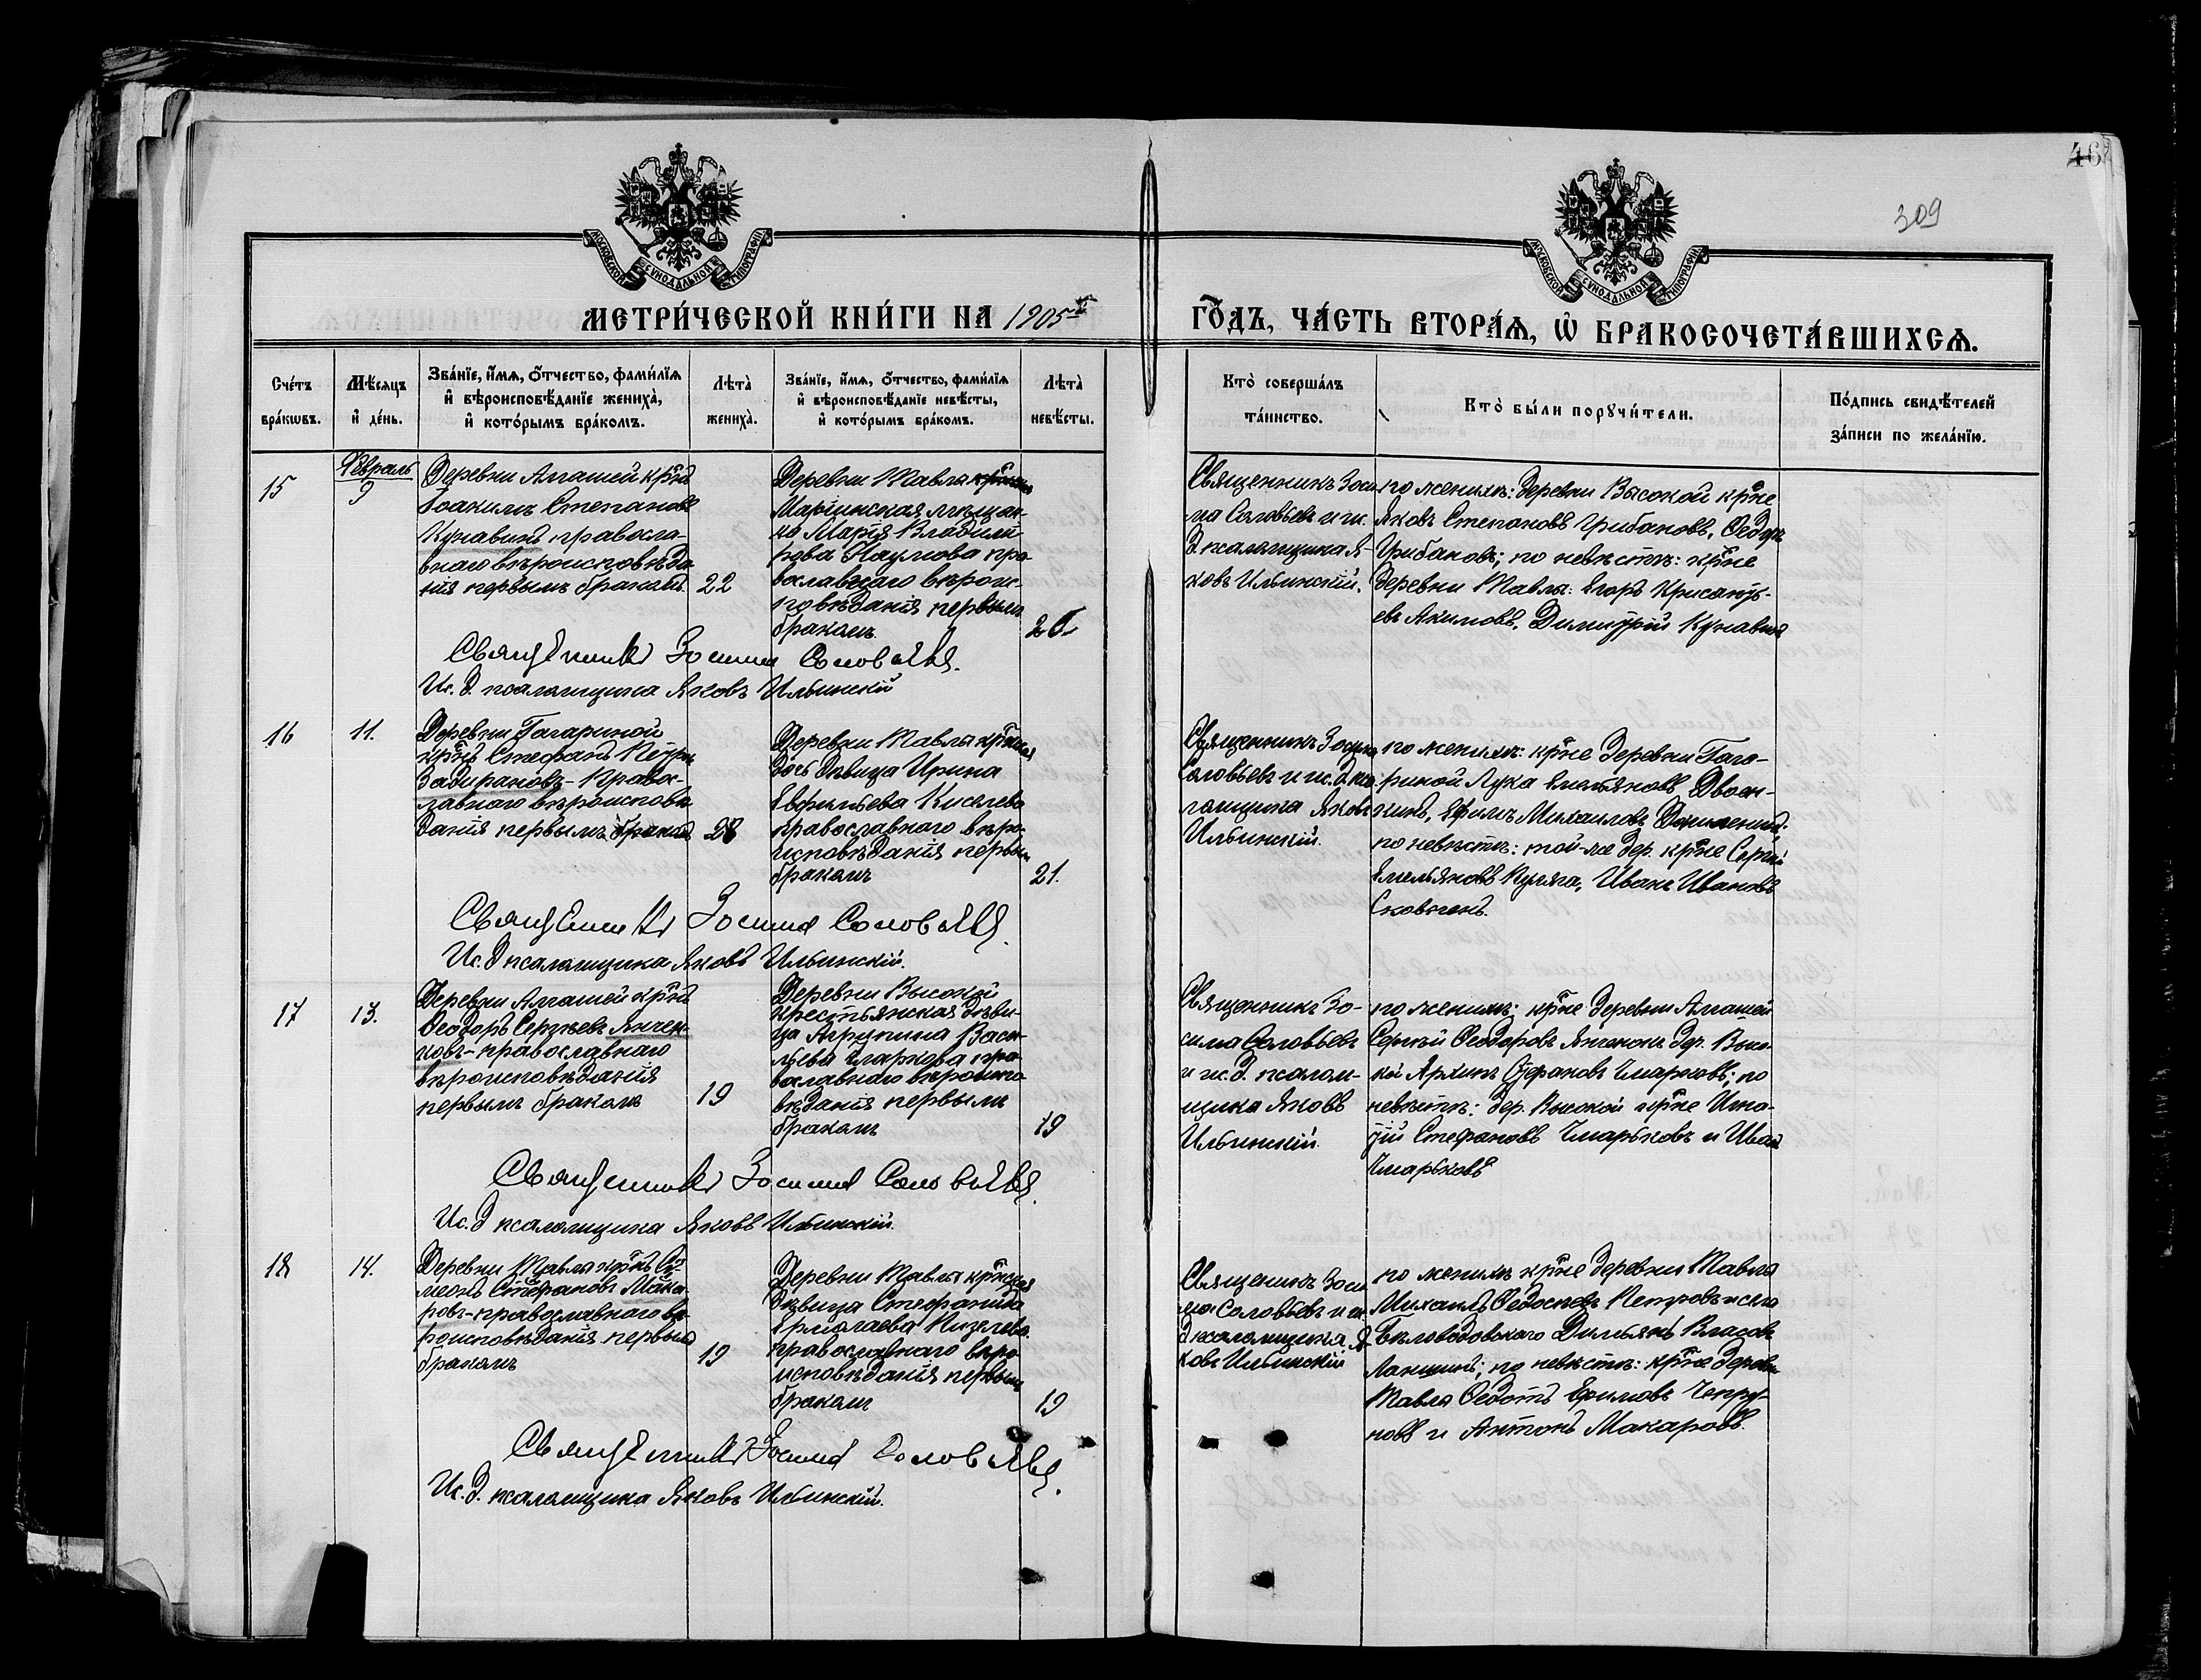 468
309
МОСКОВСКОЙ СѴНОДАЛЬНОЙ ТИПОГРАФІИ
МОСКОВСКОЙ СѴНОДАЛЬНОЙ ТИПОГРАФІИ
МЕТРИ́ЧЕСКОЙ КНИ́ГИ НА 1905й
ГО́ДЪ, ЧА́СТЬ ВТОРА́Ѧ, Ѡ҆ БРАКОСОЧЕТА́ВШИХСѦ.
Сче́тъ
бра́кѡвъ.
Мѣ́сяцъ
и҆ де́нь.
Зва́нїе, и҆́мѧ, ѻ҆́тчество, фами́лїѧ
и҆ вѣроисповѣ́данїе жениха̀,
и҆ кото́рымъ бра́комъ.
Лѣта̀
жениха̀.
Зва́нїе, и҆́мѧ, ѻ҆́тчество, фами́лїѧ
и҆ вѣроисповѣ́данїе невѣ́сты,
и҆ кото́рымъ бра́комъ.
Лѣта̀
невѣ́сты.
Кто̀ соверша́лъ
та́инство.
Кто̀ бы́ли порꙋчи́тели.
По́дпись свидѣ́телей
за́писи по жела́нїю.
15
Февраль
9
Деревни Алгашей кр̃нъ
Іоакимъ Степановъ
Кунавинъ правосла-
внаго вѣроисповѣда
нія первымъ бракомъ
22
Деревни Тавлы
Маріинская мѣщан-
ка Марія Владими-
рова Наумова пра-
вославнаго вѣроис-
повѣданія первымъ
бракомъ.
Священникъ Зоси
ма Соловьевъ и и.
д. псаломщика Я-
ковъ Ильинскій.
по женихѣ: деревни Высокой кр̃не
Яковъ Степановъ Грибановъ, Ѳедоръ
Грибановъ; по невѣстѣ: кр̃не
деревни Тавлы: Егоръ Крисанѳь-
евъ Акимовъ, Димитрій Кунавинъ
Священникъ Зосима Соловьевъ.
Ис. д. псаломщика Яковъ Ильинскій
16
11.
Деревни Гагариной
кр̃нъ Стефанъ Петровъ
Задирановъ - Правос-
лавнаго вѣроисповѣ
данія первымъ бракомъ
28
Деревни Тавлы кр̃нская
дочь дѣвица Ирина
Евфимьева Киселева
православнаго вѣро-
исповѣданія первымъ
бракомъ
21.
Священникъ Зосима
Соловьевъ и ис. д. пса
ломщика Яковъ
Ильинскій.
по женихѣ: кр̃не деревни Гага-
риной Лука Емельяновъ Двоен-
кинъ, Ефимъ Михаиловъ
по невѣстѣ: той-же дер. кр̃не Сергѣй
Емельяновъ Иванъ Ивановъ
Священникъ Зосима Соловьевъ.
Ис. д. псаломщика Яковъ Ильинскій.
17
13.
Деревни Алгашей кр̃нъ
Ѳеодоръ Сергѣевъ Янчен-
ковъ - православнаго
вѣроисповѣданія
первымъ бракомъ
19
Деревни Высокой
крестьянская дѣви-
ца Агрипина Васи-
льева Чмаркова пра-
вославнаго вѣроиспо-
вѣданія первымъ
бракомъ
19
Священникъ Зо-
сима Соловьевъ
и ис. д. псалом-
щика Яковъ
Ильинскій.
по женихѣ: кр̃не деревни Алгашей
Сергѣй Ѳеодоровъ Янченокъ дер. Высо-
кой Архипъ Стефановъ Чмарковъ; по
невѣстѣ: дер. Высокой кр̃не Игна-
тій Стефановъ Чмарковъ и Иванъ
Чмарковъ
Священникъ Зосима Соловьевъ.
Ис. д. псаломщика Яковъ Ильинскій.
18
14.
Деревни Тавла кр̃нъ Си-
меонъ Стефановъ Мака-
ровъ - православнаго вѣ-
роисповѣданія первымъ
бракомъ
19
Деревни Тавлы кр̃нская
дѣвица Стефанида
Ермолаева Кизелева
православнаго вѣро
исповѣданія первымъ
бракомъ
19
Священникъ Зоси
ма Соловьевъ и ис.
д. псаломщика Я-
ковъ Ильинскій
по женихѣ кр̃не деревни Тавла
Михаилъ Ѳедосѣевъ Петровъ и села
Бѣловодовскаго Демьянъ Власовъ
по невѣстѣ: кр̃не деревни
Тавла Ѳедотъ Ефимовъ Чепру-
новъ и Антонъ Макаровъ.
Священникъ Зосима Соловьевъ.
Ис. д. псаломщика Яковъ Ильинскій.